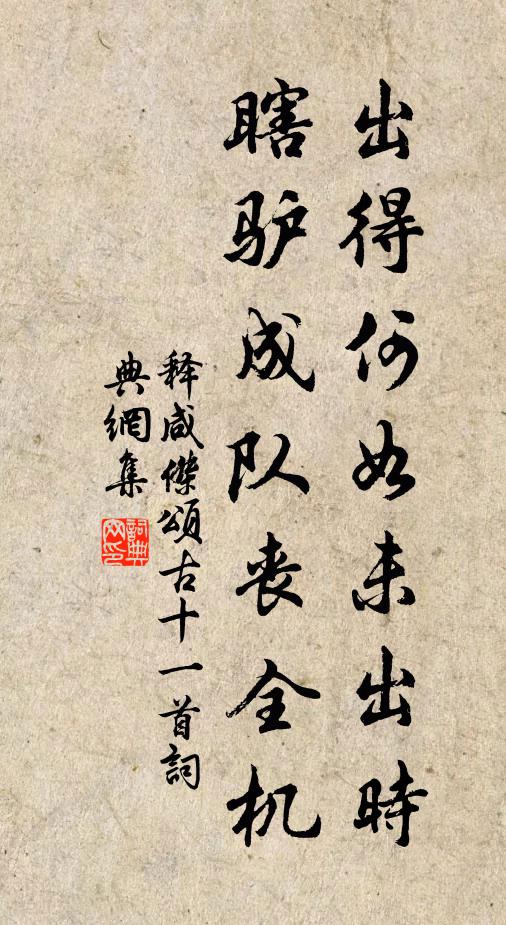 出得何如未出時
瞎驴成队丧全机
释咸傑頌古十一首詞
典網集
詞典
网印